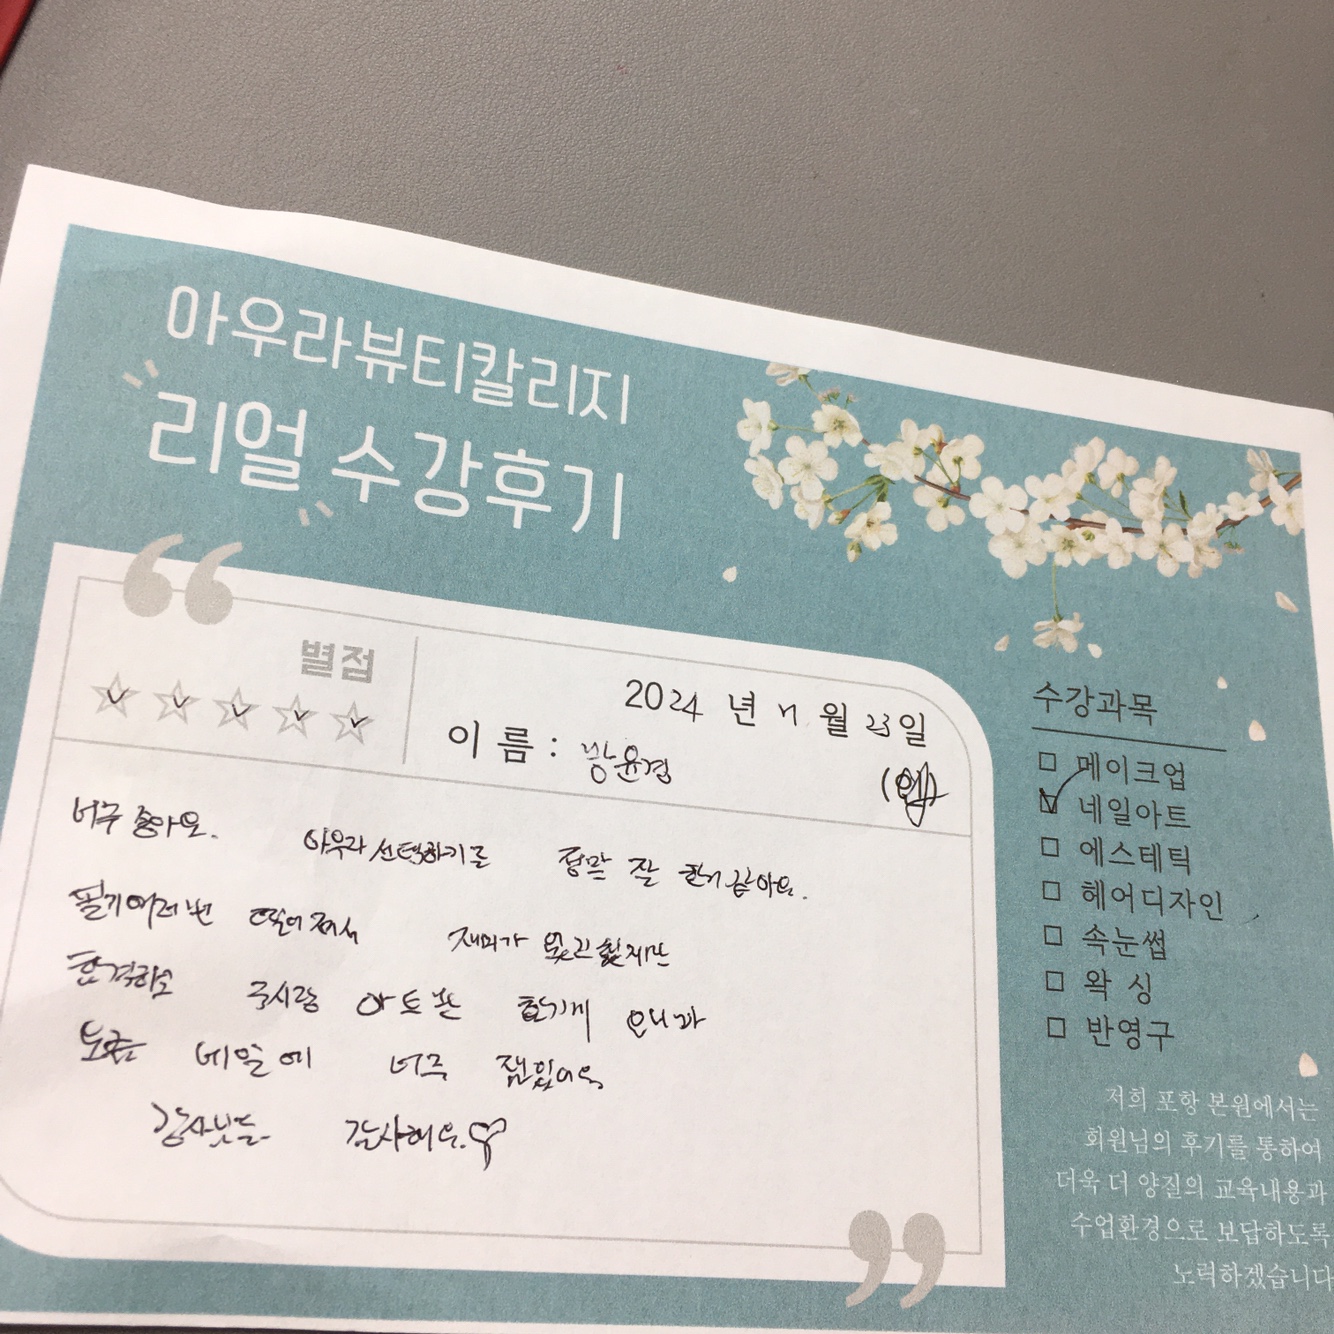 아우라뷰티칼리지
리얼 수강후기
별점
2024 년 7 월 23일
이 름 : 방윤경
너무 좋아요. 아우라 선택하기를 정말 잘 한거 같아요.
필기여러번 떨어져서 재미가 없긴했지만
합격하고 구시랑 아트반 합기게 오니까
요즘 네일에 너무 잼있어요
강사님들 감사해요.♡
수강과목
메이크업
네일아트
에스테틱
헤어디자인
속눈썹
왁 싱
반영구
저희 포항 본원에서는
회원님의 후기를 통하여
더욱 더 양질의 교육내용과
수업환경으로 보답하도록
노력하겠습니다